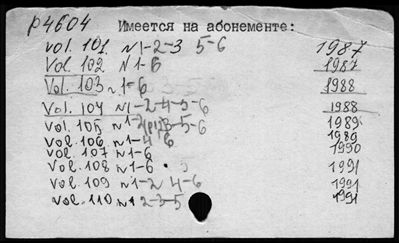 р4604 Имеется на абонементе:
vol. 101. N1-2-3 5-6 1987
Vol. 102 N1-6 1987
Vol. 103 N1-6 1988
Vol. 104 N1-2-4-5-6 1988
vol. 105 N1-2 3-5-6 1989
vol. 106 N1-4 6 1989
vol. 107 N1-6 1990
vol. 108 N1-6 5 1991
vol. 109 N1-2 4-6 1991
vol. 110 N1 2-3-5 1991